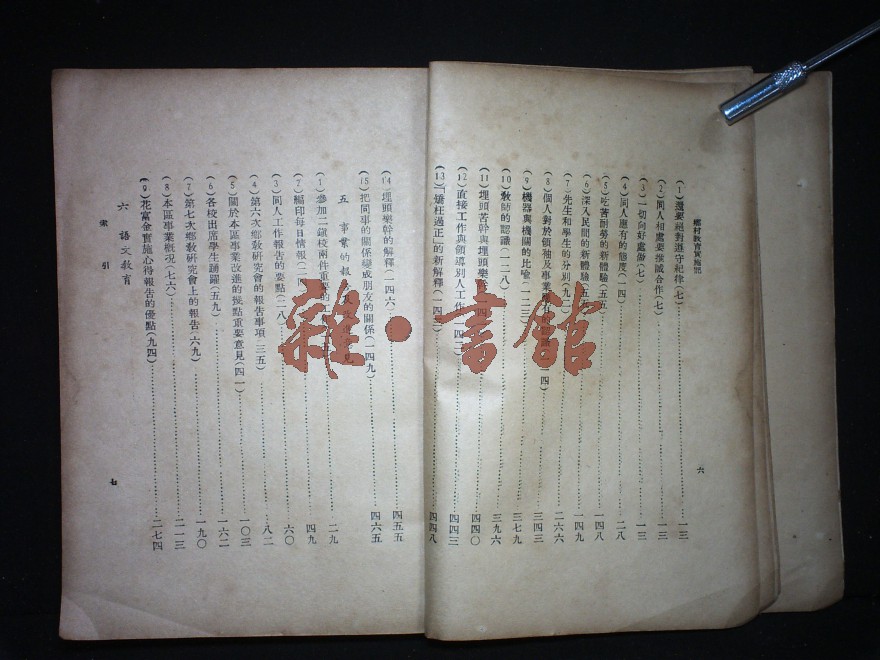 鄉村教育實施記
(1)還要絕對遵守紀律(七)…一三
(2)同人相處要推誠合作(七)…一三
(3)一切向好處做(七)…一三
(4)同人應有的態度(一四)…二八
(5)吃苦耐勞的新體驗(五五)…一四八
(6)深入民間的新體驗(五六)…一四九
(7)先生和學生的分別(九二)…二六六
(8)個人對於領袖及事業…一四)…三四三
(9)機器與機關的比喻(一二三)…三七九
(10)教師的認識(一二八)…三九六
(11)埋頭苦幹與埋頭樂…四四〇
(12)直接工作與領導別人工作(一四二)…四四三
(13)「矯枉過正」的新解釋(一四三)…四四八
六
(14)埋頭樂幹的解釋(一四六)…四五五
(15)把同事的關係變成朋友的關係(一四九)…四六五
五 事業的報…意見
(1)參加二鎮校兩件重要的…二九
(2)觸印每日情報(二…四九
(3)同人工作報告的要點(二八)…六〇
(4)第六次鄉教研究會的報告事項(三五)…八二
(5)關於本區事業改進的幾點重要意見(四一)…一〇三
(6)各校出席學生踴躍(五九)…一六二
(7)第七次鄉教研究會上的報告(六九)…一九〇
(8)本區事業概況(七六)…二一三
(9)花富金實施心得報告的優點(九四)…二七四
六 語文教育
索引
七
雜·書館